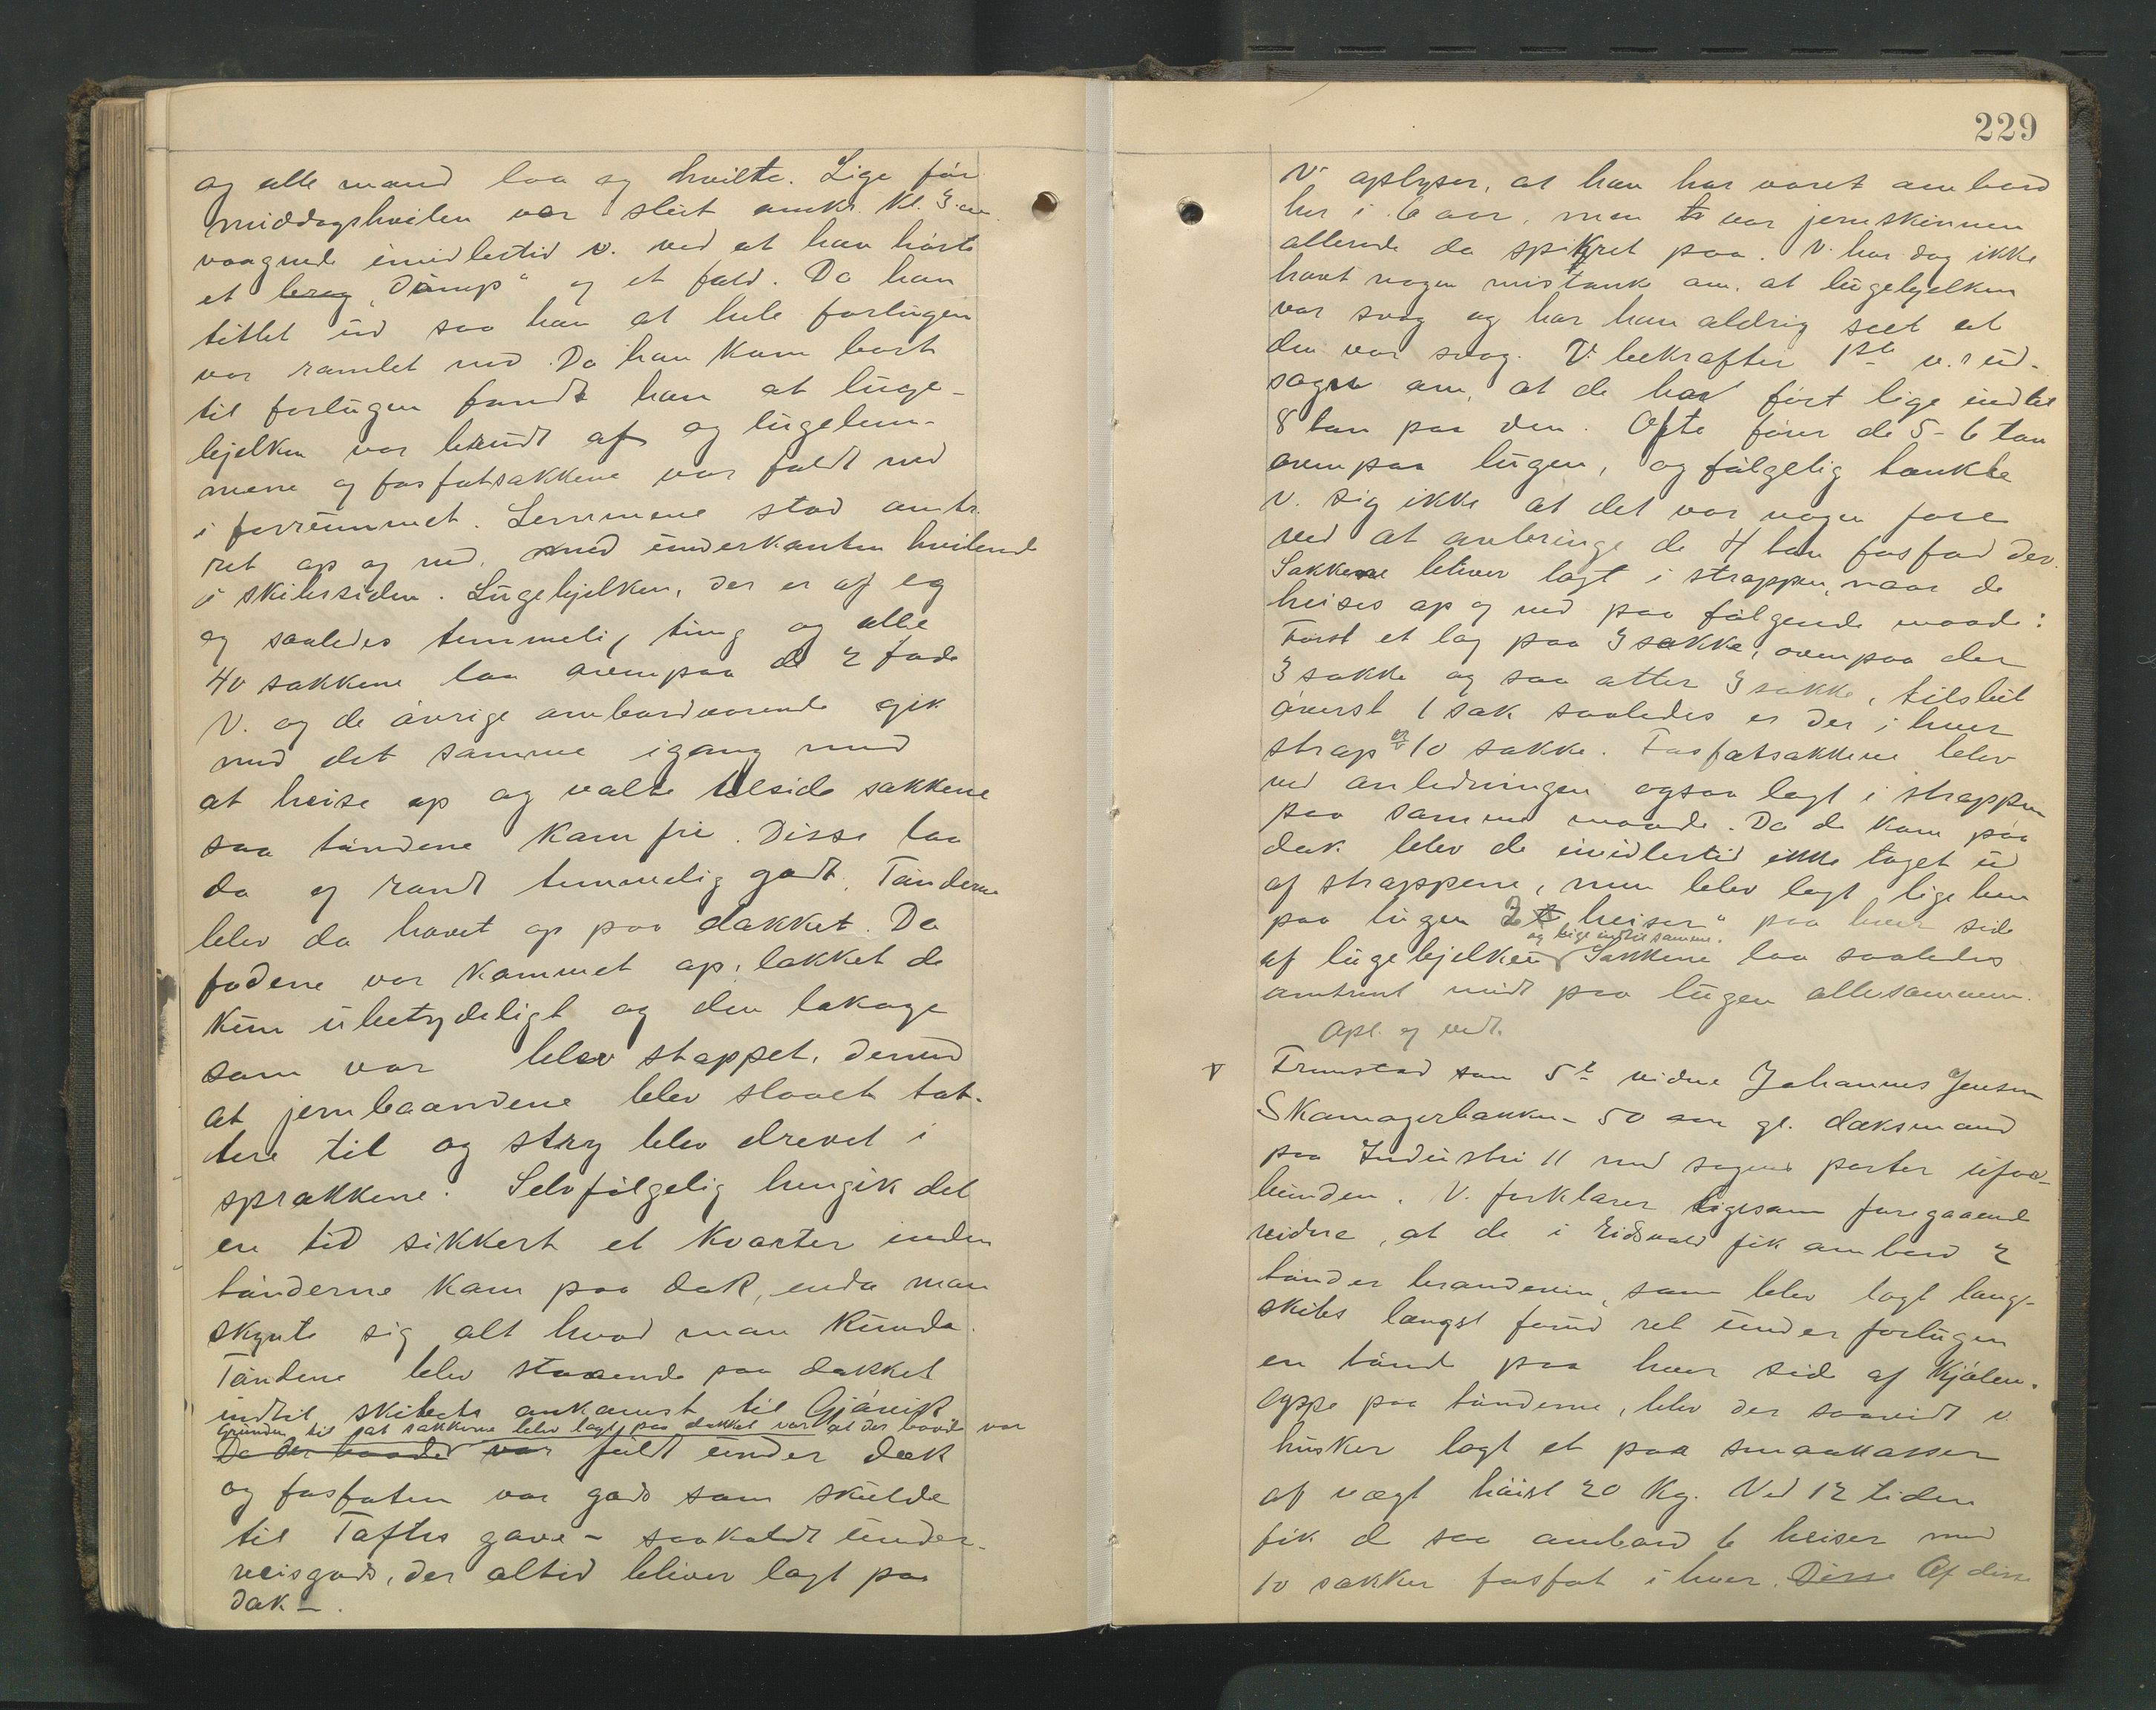 og alle mand laa og hvilte. Lige før
middagshvilen var slut omkr. Kl. 3 em.
vaagnede imidlertid v. ved at han hørte
et brag „Dump" og et fald. Da han
tittet ud saa han at hele forlugen
var ramlet ned. Da han kom bort
til forlugen fandt han at luge-
bjelken var brudt af og lugelem-
mene og fosfatsækkene var faldt ned
i forrummet. Lemmene stod omtr.
ret op og ned, med underkanten hvilende
i skibssiden. Lugebjelken, der er af eg
og saaledes temmeli, tung og alle
40 sækkene laa ovenpaa de 2 fade
V. og de øvrige ombordværende gik
med det samme igang med
at heise op og vælte tilside sækkene
saa tøndene kom fri. Disse laa
da og randt temmelig godt. Tønderne
blev da hævet op paa dækket. Da
fadene var kommet op, lækket de
kun ubetydeligt og den lækage
som var blev stoppet, derved
at jernbaandene blev slaaet tæt-
tere til og stry blev drevet i
sprækkene. Selvfølgelig hengik det
en tid sikkert et kvarter inden
tønderne kom paa dæk, enda man
skynte sig alt hvad man kunde.
Tøndene blev staaende paa dækket
indtil skibets ankomst til Gjøvik
Grunden til at sækkerne blev lagt paa dækket var at der baade var
Da der baade var fuldt under dæk
og fosfaten var gods som skulde
til Toftes gave – saakaldt under-
veisgods, der altid bliver lagt paa
dæk –.
229
V. oplyser, at han har været ombord
her i 6 aar, men da var jernskinnen
allerede da spikret paa. V. har dog ikke
havt nogen mistanke om, at lugebjelken
var svag og har han aldrig seet at
den var svag. V. bekræfter 1ste v.s ud-
sagn om, at de har ført lige indtil
8 ton paa den. Ofte fører de 5-6 ton
ovenpaa lugen, og følgelig tænkte
v. sig ikke at det var nogen fare
ved at anbringe de 4 ton fosfat der.
Sækkene bliver lagt i strappen, naar de
heises op og ned paa følgende maade:
Først et lag paa 3 sække, ovenpaa der
3 sække og saa atter 3 sække, tilslut
øverst 1 sæk saaledes er der i hver
strap 10 sække. Fosfatsækkene blev
ved anledningen ogsaa lagt i strappen
paa samme maade. Da de kom paa
dæk blev de imidlertid ikke taget ud
af strappene, men blev lagt lige hen
paa lugen 2 „heiser" paa hver side
og lige indtil samme.
af lugebjelken Sækkene laa saaledes
omtrent midt paa lugen allesammen.
Opl. og vedt.
Fremstod som 5te vidne Johannes Jensen
Skomagerbakken – 50 aar gl. dæksmand
paa Industri II med sagens parter ufor-
bunden. V. forklarer ligesom foregaaende
vidne, at de i Eidsvold fik ombord 2
tønder brændevin, som blev lagt lang-
skibs længst forud ret under forlugen
en tønde paa hver side af Kjølen.
Oppe paa tønderne, blev der saavidt v.
husker lagt et par smaakasser
af vægt høist 20 kg. Ved 12 tiden
fik d saa ombord 6 heiser med
10 sækker fosfat i hver. Disse Af disse